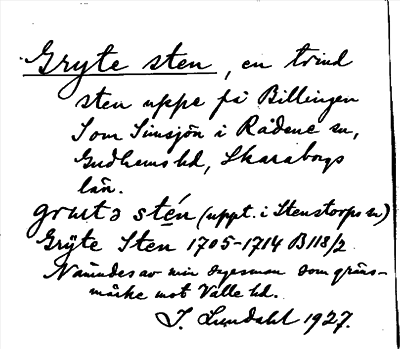 Gryte sten, en trind
sten uppe på Billingen
Som Simsjön i Rådene sn,
Gudhems hd, Skaraborgs
län.
grutə stén (uppt. i Stenstorps sn)
Gryte Sten 1705-1714 B118/2
Nämdes av min sagesman som gräns-
märke mot Valle hd.
J. Lundahl 1927.